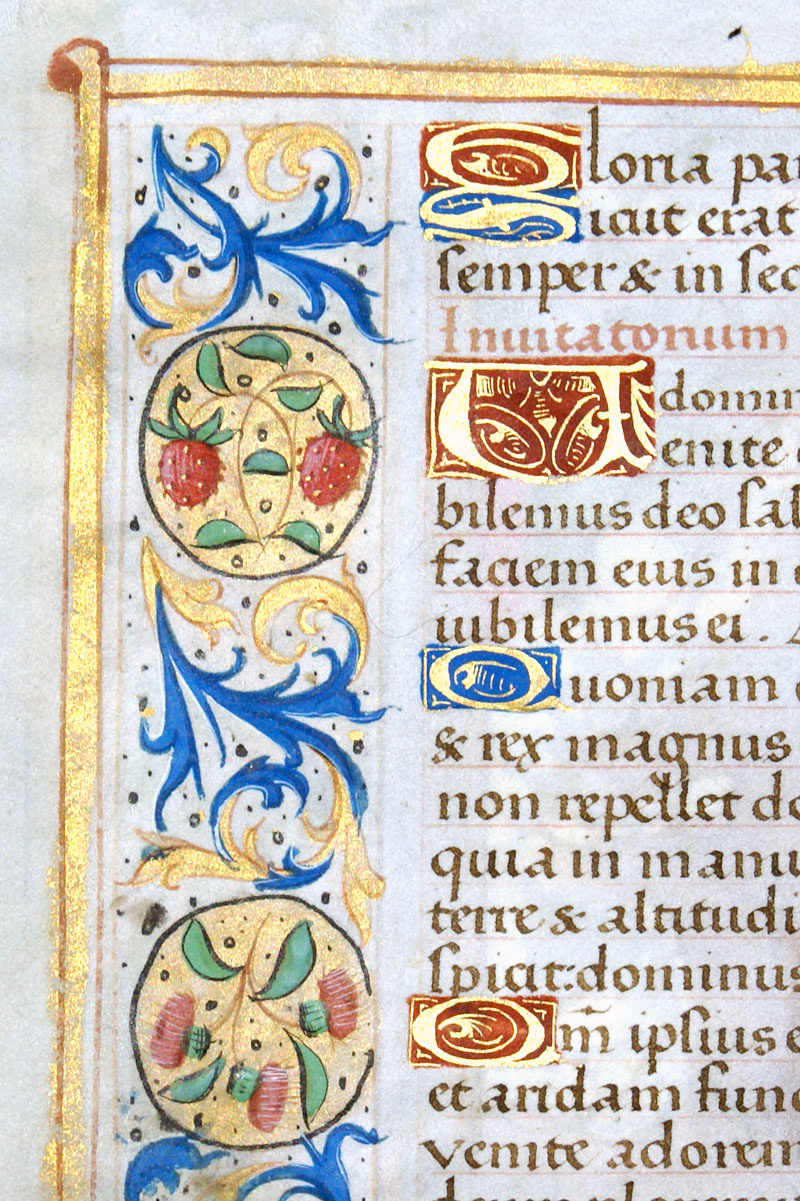 Gloria pa
Sicut erat
semper & in sec
Inuitatorium
domin
Uenite
bilemus deo sal
faciem eius in
iubilemus ei .
Quoniam
& rex magnus
non repellet
quia in manu
terre & altitudi
spicit: dominus
Qm̃ ipsius e
et aridam fun
venite adorem